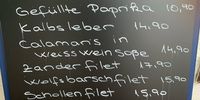 Gefüllte Paprika 10,90
Kalbsleber 14,90
Calamaris in
Weissweinsoße 14,90
Zanderfilet 17,90
Wolfsbarschfilet 15,90
Schollenfilet 15,90